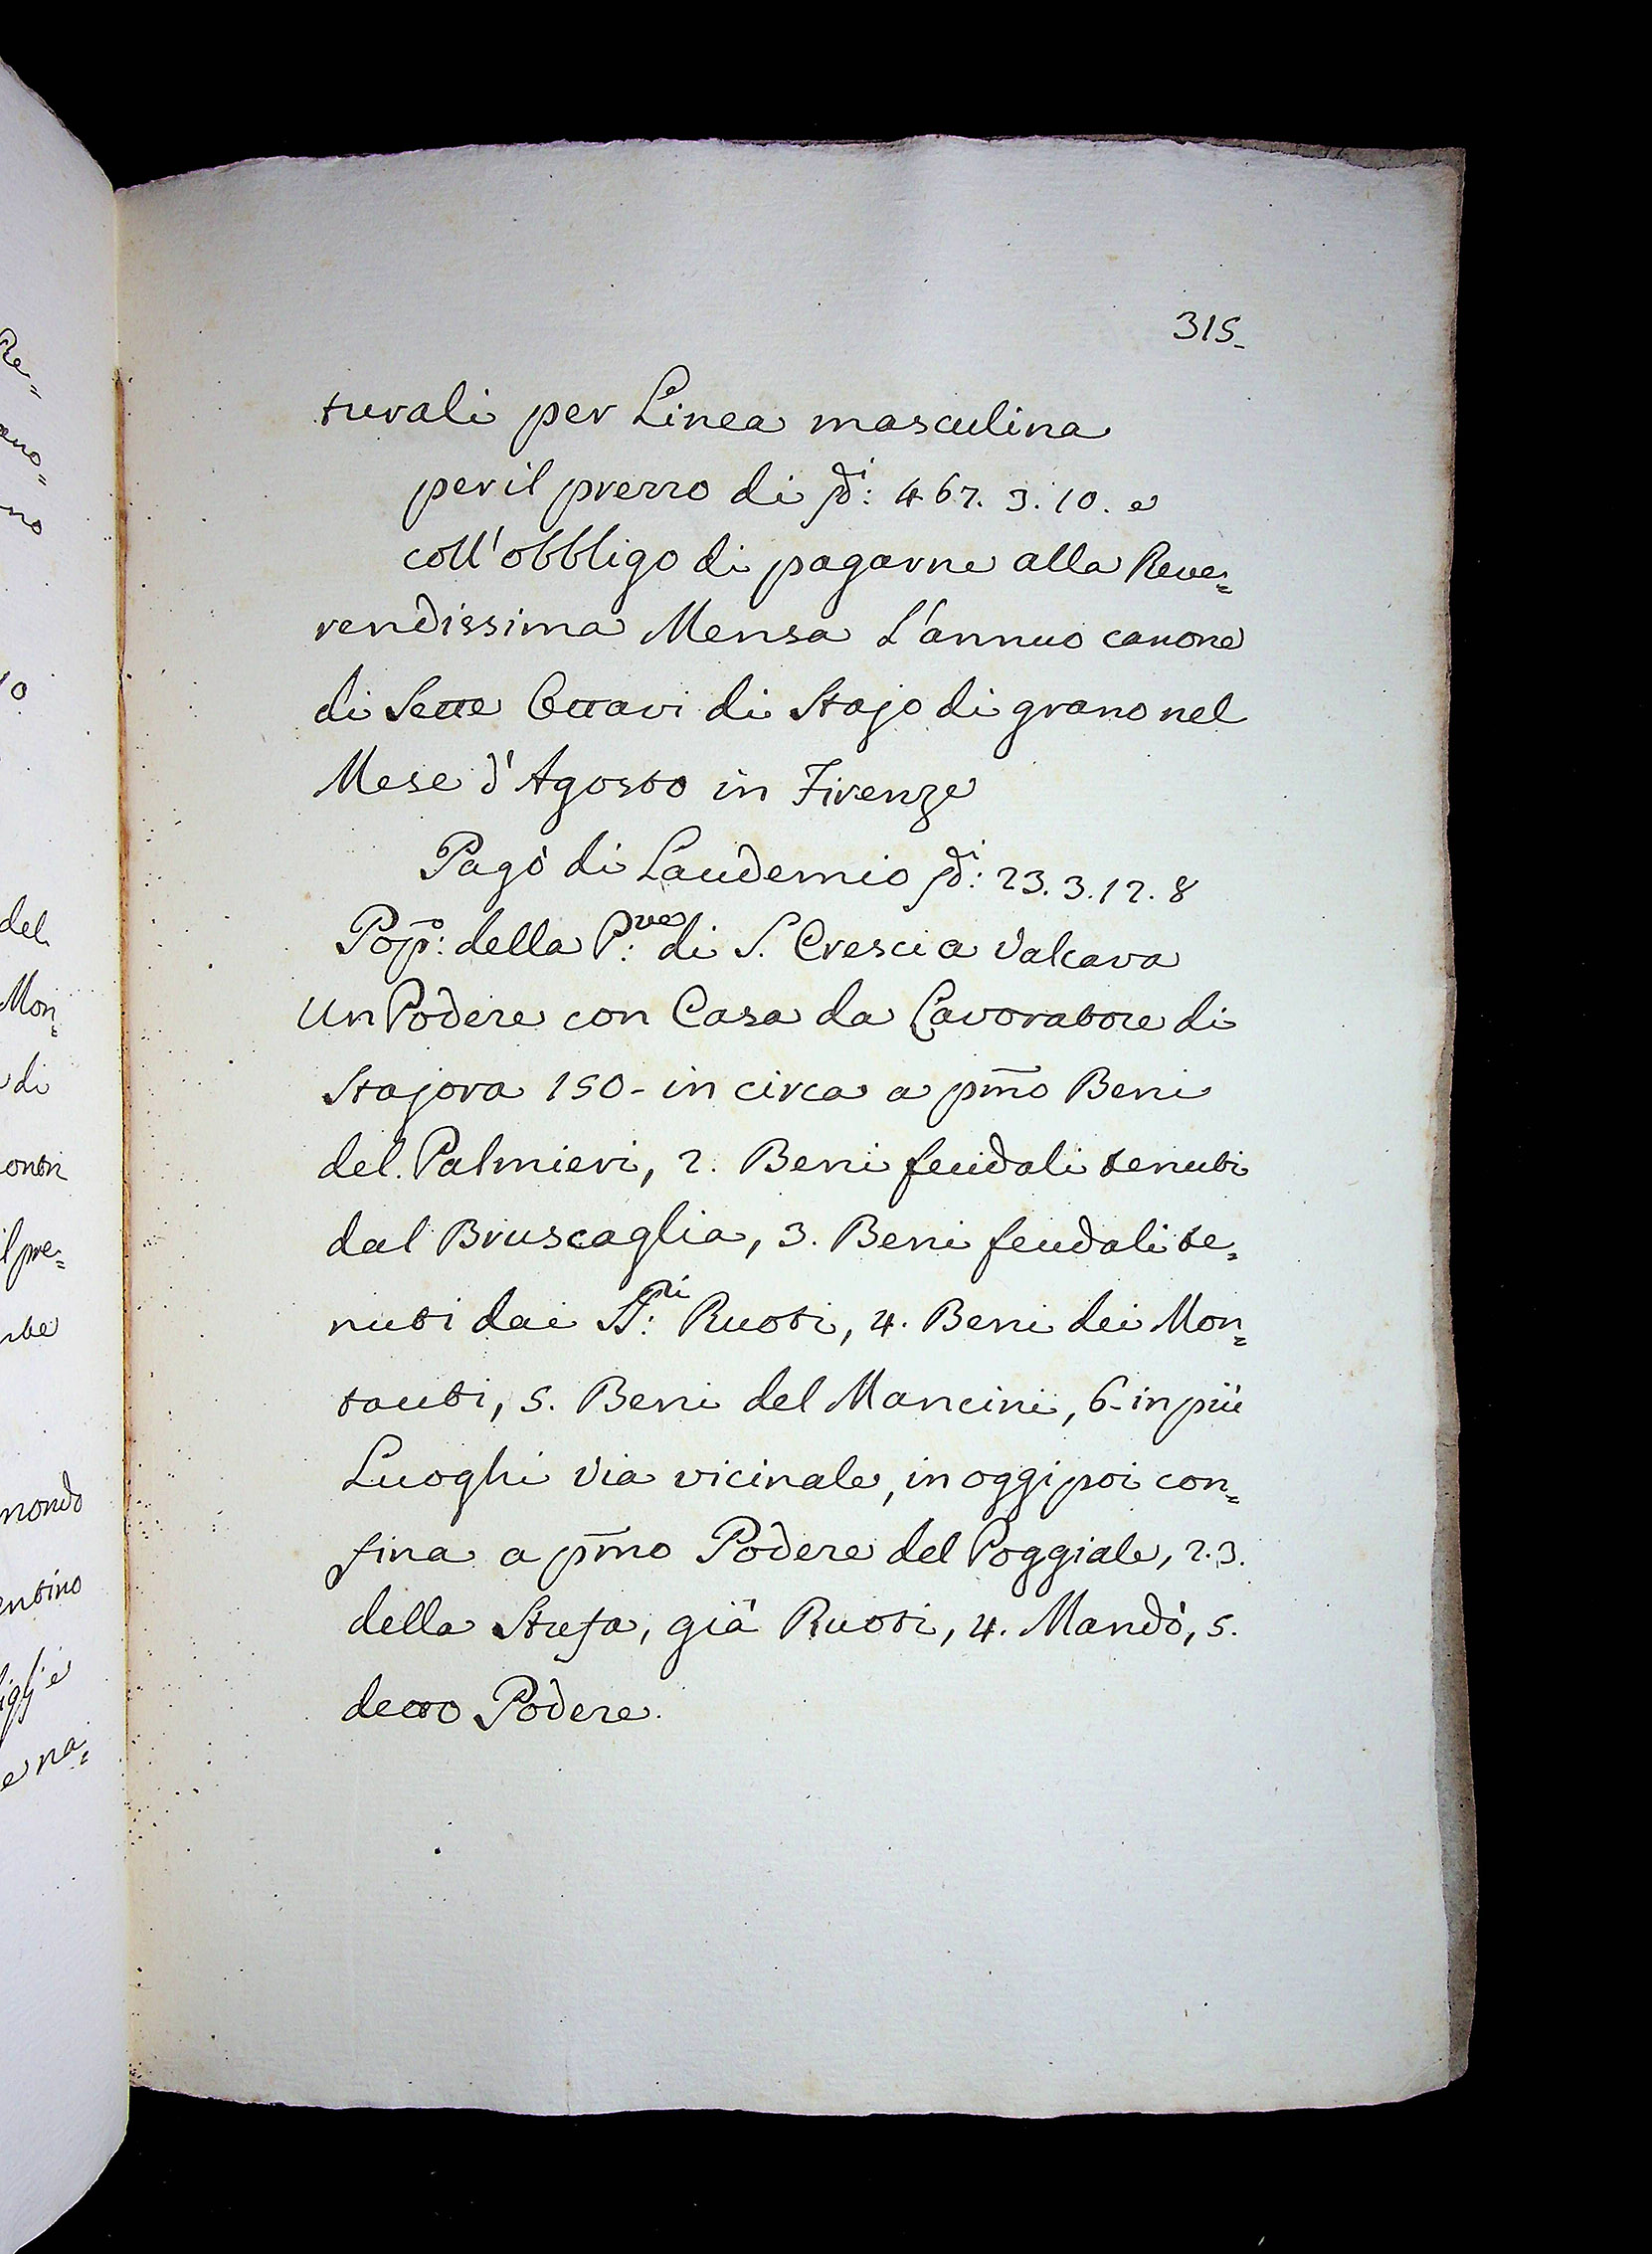 315_
turali per Linea masculina
per il prezzo di ſdi: 467. 3. 10. e
coll'obbligo di pagarne alla Reve=
rendissima Mensa L'annuo canone
di Sette Ottavi di Stajo di grano nel
Mese d'Agosto in Firenze
Pagò di Laudemio ſdi: 23. 3. 12. 8
Popo: della P:ve di S. Cresci a Valcava
Un Podere con Casa da Lavoratore di
Stajora 150- in circa a pmo Beni
del Palmieri, 2. Beni feudali tenuti
dal Bruscaglia, 3. Beni feudali te=
nuti dai SS:ri Ruoti, 4. Beni dei Mon=
tauti, 5. Beni del Mancini, 6- in più
Luoghi Via vicinale, in oggi poi con=
fina a pmo Podere del Poggiale, 2. 3.
della Stufa, già Ruoti, 4. Mandò, 5.
detto Podere.
10
del
Mon=
di
il pre=
mondo
e na=